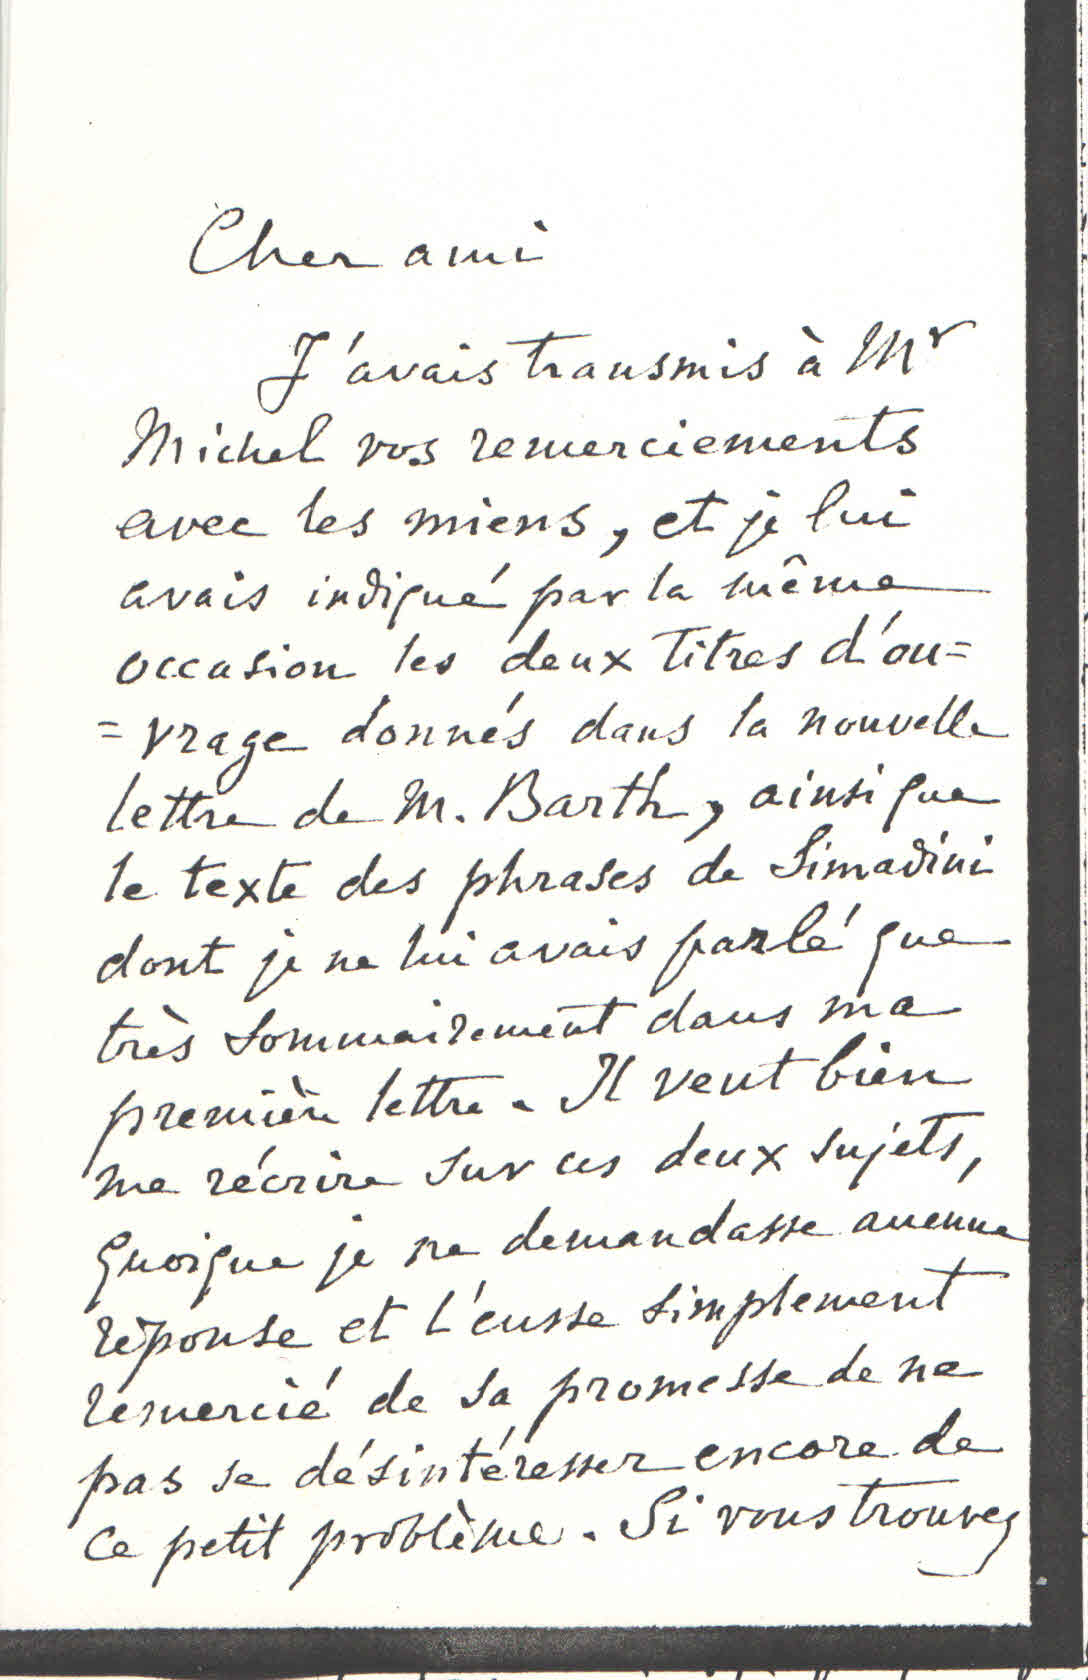 Cher ami
J'avais transmis à Mr
Michel vos remerciements
avec les miens, et je lui
avais indiqué par la même
occasion les deux titres d'ou=
=vrage donnés dans la nouvelle
lettre de M. Barth, ainsi que
le texte des phrases de Simadini
dont je ne lui avais parlé que
très sommairement dans ma
première lettre. Il veut bien
me récrire sur ces deux sujets,
quoique je ne demandasse aucune
réponse et l'eusse simplement
remercié de sa promesse de ne
pas se désintéresser encore de
ce petit problème. Si vous trouvez